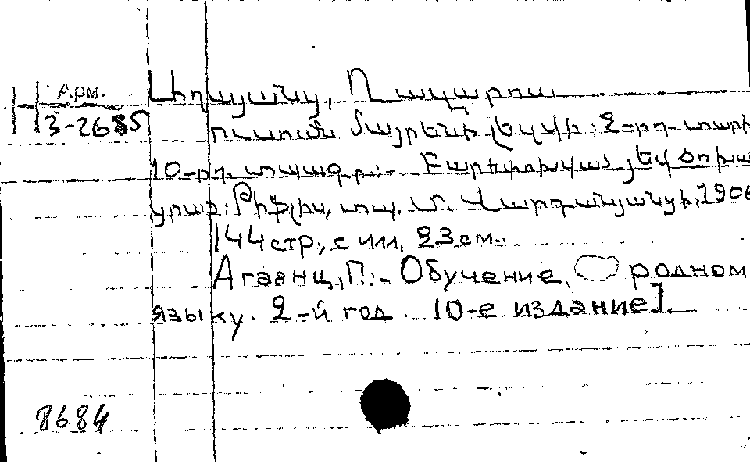 Арм.
Աղայանց, Ղազարոս
Н 3-2685
Ուսումն մայրենի լեզվի: 2-րդ տարի
10-րդ տպագր:- Բարեփոխված եվ ծոխա
ցրած: Թիֆլիս, տպ. Մ. Վարդանյանցի, 1906
144 стр., с илл, 23 см.
Агаянц, П.:- Обучение родном
языку. 2-й год. 10-е издание].
8684